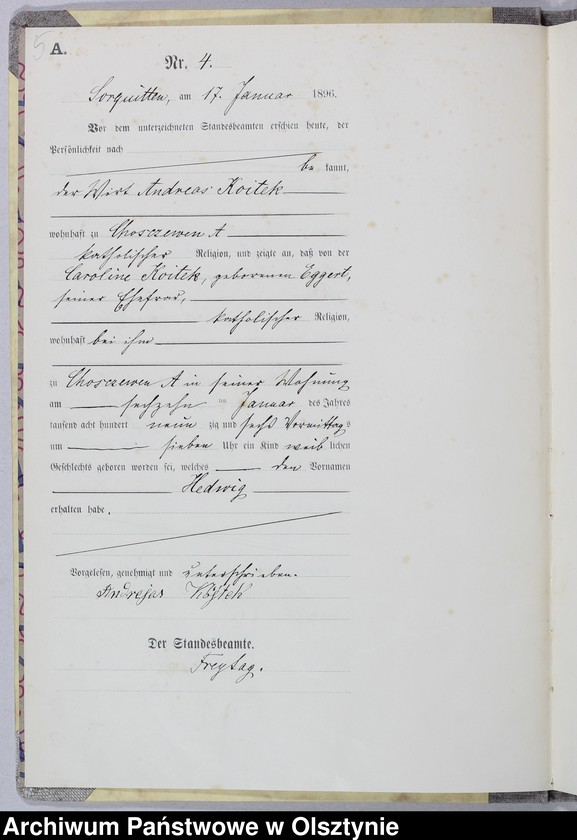 5
A.
Nr. 4.
Sorquitten, am 17. Januar 1896.
Vor dem unterzeichneten Standesbeamten erschien heute, der
Persönlichkeit nach
be kannt,
der Wirt Andreas Koitek
wohnhaft zu Choszewen A
katholischer Religion, und zeigte an, daß von der
Caroline Koitek, geborenen Eggert,
seiner Ehefrau,
katholischer Religion,
wohnhaft bei ihm
zu Choszewen A in seiner Wohnung
am sechzehn ten Januar des Jahres
tausend acht hundert neun zig und sechs Vormittag s
um sieben Uhr ein Kind weib lichen
Geschlechts geboren worden sei, welches den Vornamen
Hedwig
erhalten habe.
Vorgelesen, genehmigt und unterschrieben.
Andrejas Kojtek
Der Standesbeamte.
Freytag.
Archiwum Państwowe w Olsztynie